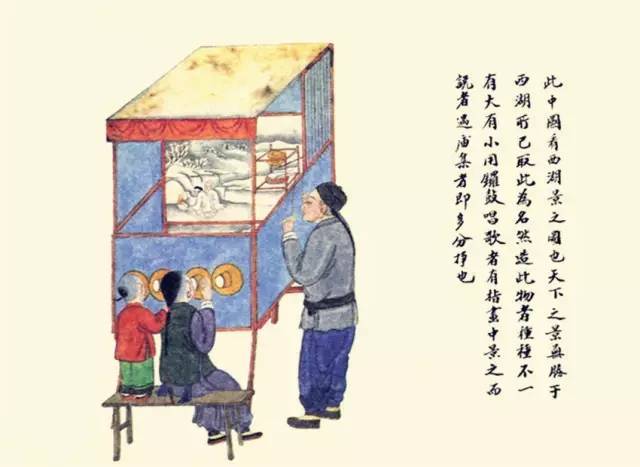 此中國看西湖景之圖也天下之景無勝于
西湖所已取此為名然造此物者種種不一
有大有小用鑼鼓唱歌者有指畫中景之而
說者遇廟集者即多分掙也